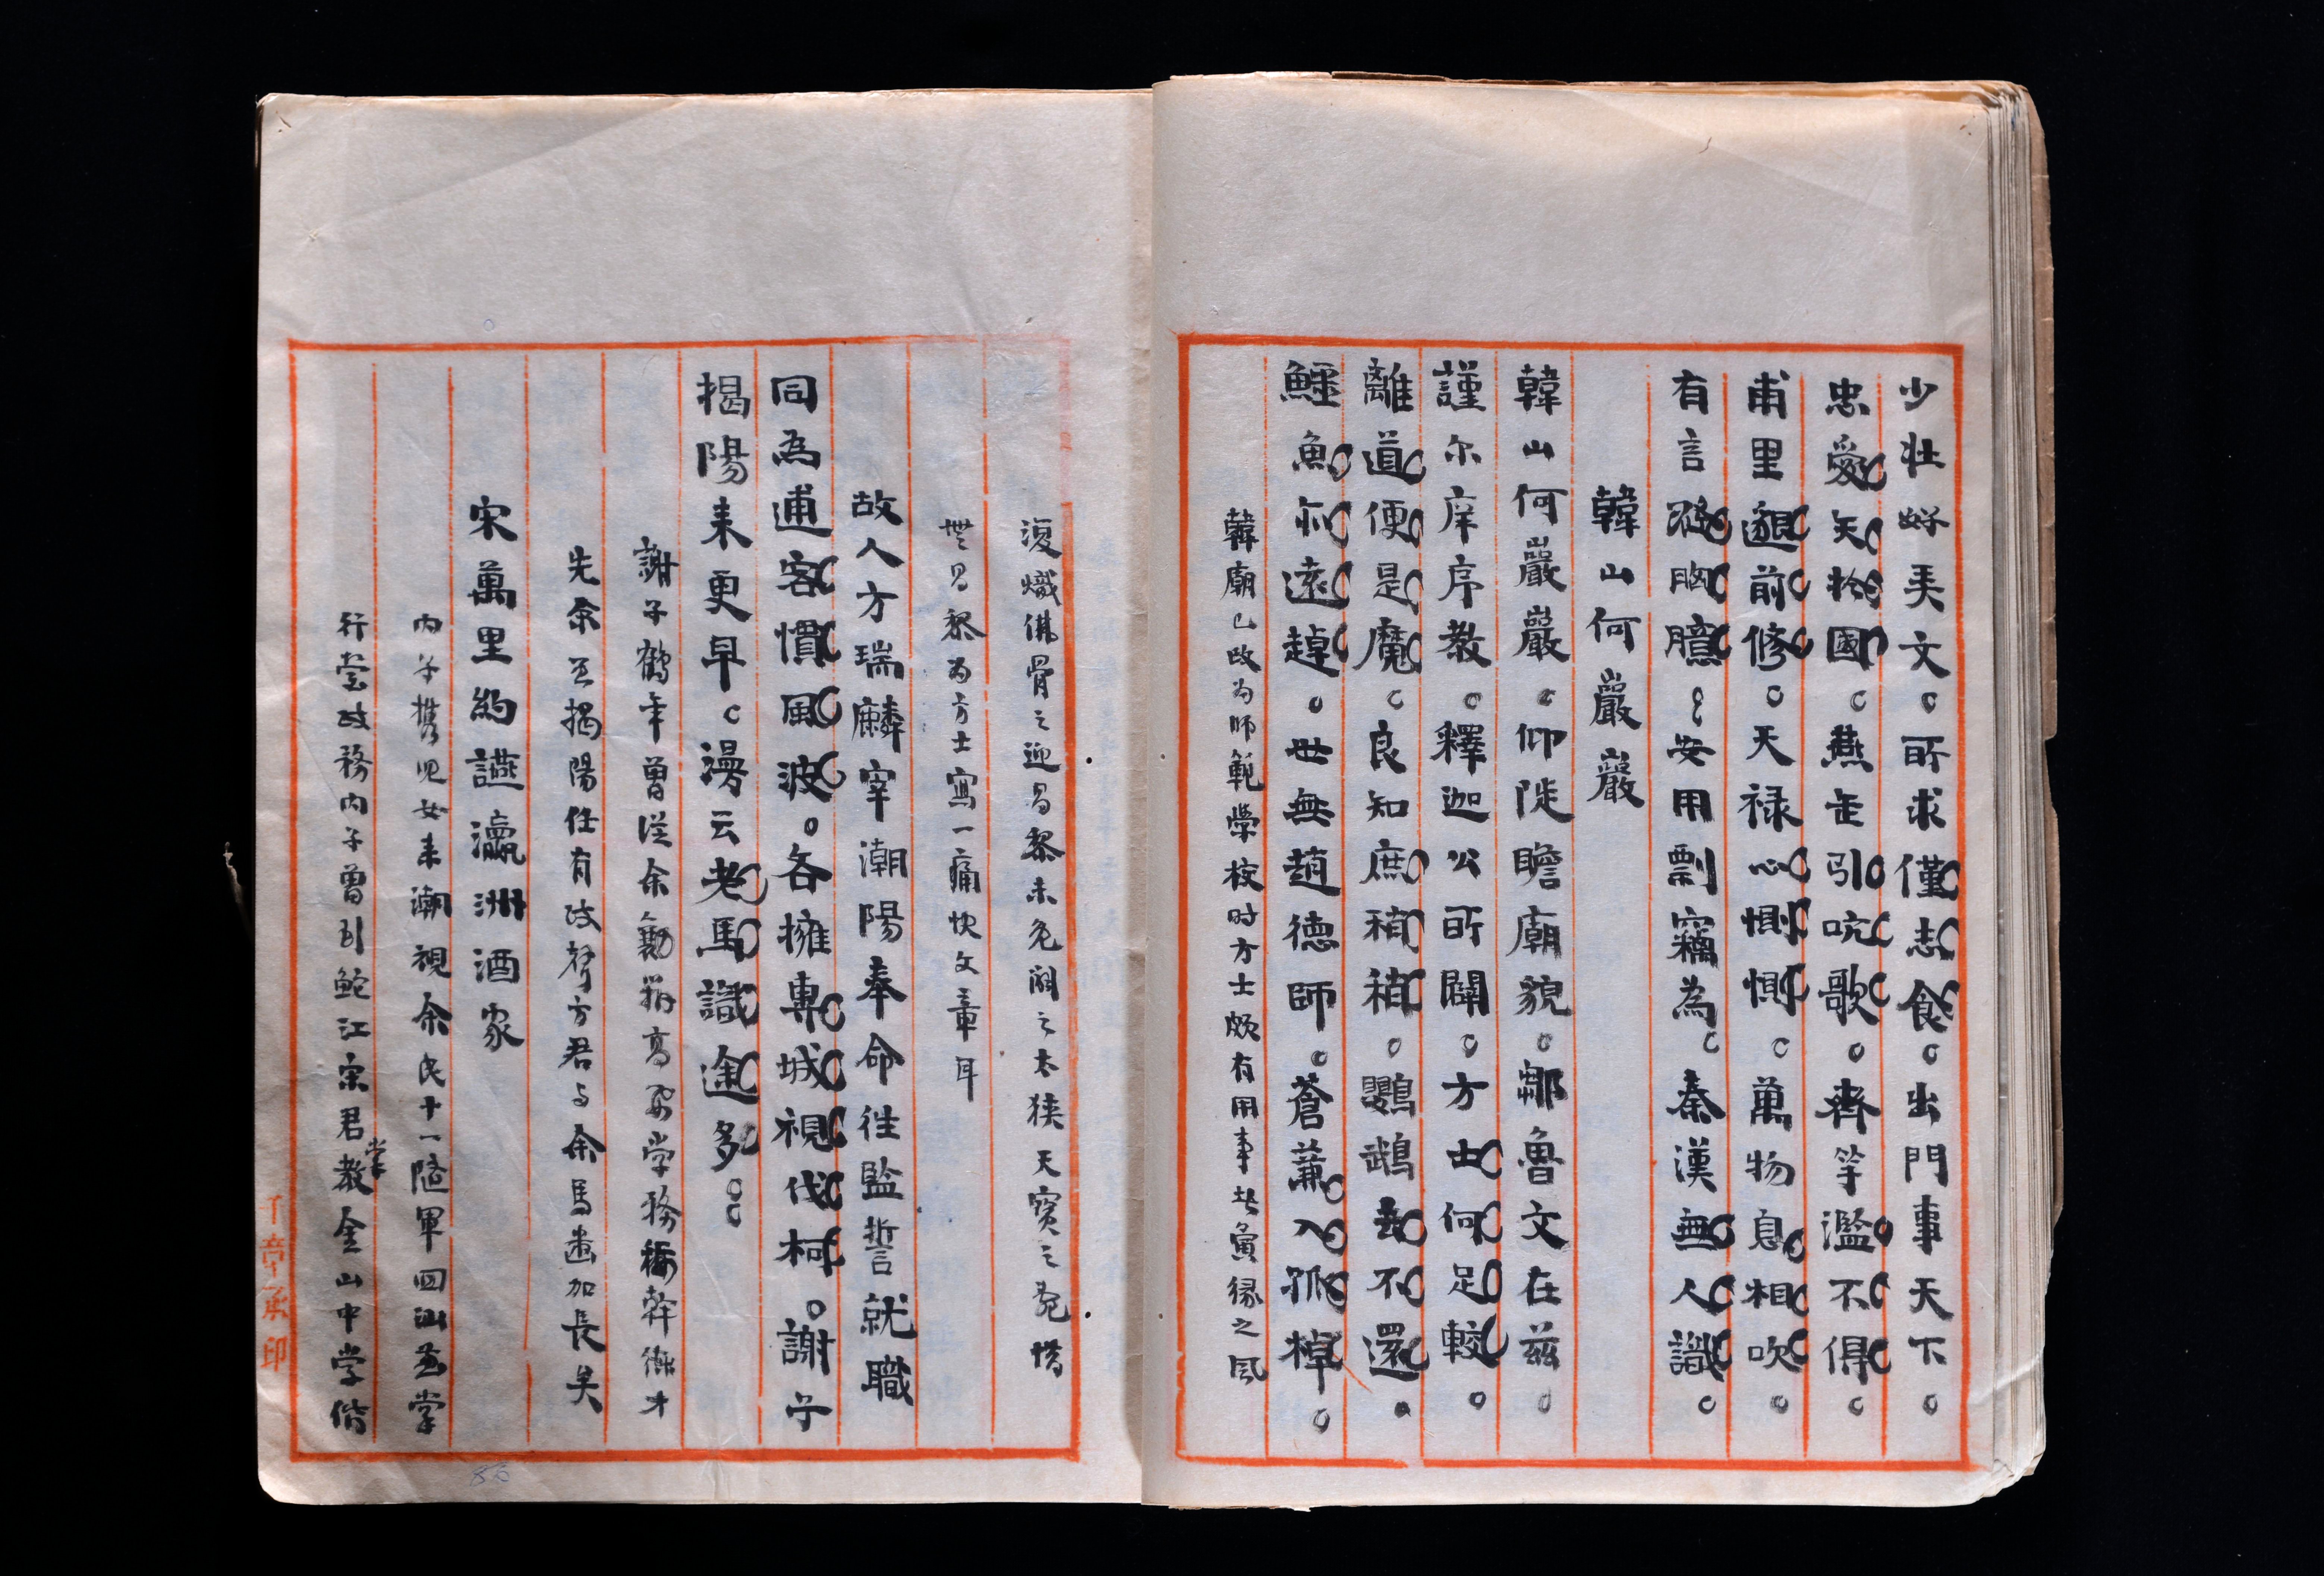 少壯好美文。所求僅志食。出門事天下。
忠愛矢拾國。燕走引吭歌。齊等濫不得。
甫里邈前修。天祿心惻惻。萬物息相吹。
有言從胸臆。安用剽竊為。秦漢無人識。
韓山何巖巖
韓山何巖巖。仰陡瞻廟貌。鄒魯文在茲。
謹尔庠序教。釋迦公所闢。方士何足較。
離道便是魔。良知庶稍稍。鸚鵡去不還。
鱷魚亦遠趠。世無趙德師。蒼蒹入孤棹。
韓廟已改为师範學校时方士頗有用事者寅緣之風
復熾佛骨之迎昌黎未免闢之太狹天寶之亂惜
無昌黎为方士寫一痛快文章耳
故人方瑞麟宰潮陽奉命往監誓就職
同為逋客慣風波。各擁專城視伐柯。謝子
揭陽来更早。漫云老馬識途多。
謝子鶴年曾從余勷翔高要学務稱幹練才
先余至揭陽任有政聲方君与余馬齒加長矣
宋萬里約讌瀛洲酒家
内子携兒女来潮視余民十一隨軍回汕兼掌
行營政務内子曾到鮀江宗君教掌金山中学偕
子章承印
86